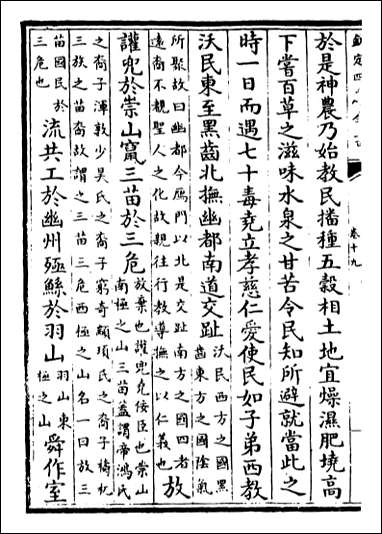 卷十九
於是神農乃始教民播種五穀相土地宜燥濕肥墝高
下嘗百草之滋味水泉之甘苦令民知所避就當此之
時一日而遇七十毒堯立孝慈仁愛使民如子弟西教
沃民東至黑齒北撫幽都南道交趾
沃民西方之國黑
齒東方之國陰氣
所聚故曰幽都今鴈門以北是交趾南方之國四者
遠裔不覩聖人之化故親往行教導撫之以仁義也
放
讙兜於崇山竄三苗於三危
放棄也讙兜堯佞臣也崇山
南極之山三苗蓋謂帝鴻氏
之裔子渾敦少昊氏之裔子窮奇顓頊氏之裔子檮杌
三族之苗裔故謂之三苗三危西極之山名一曰放三
苗國民於
三危也
流共工於幽州殛鯀於羽山
羽山東
極之山
舜作室